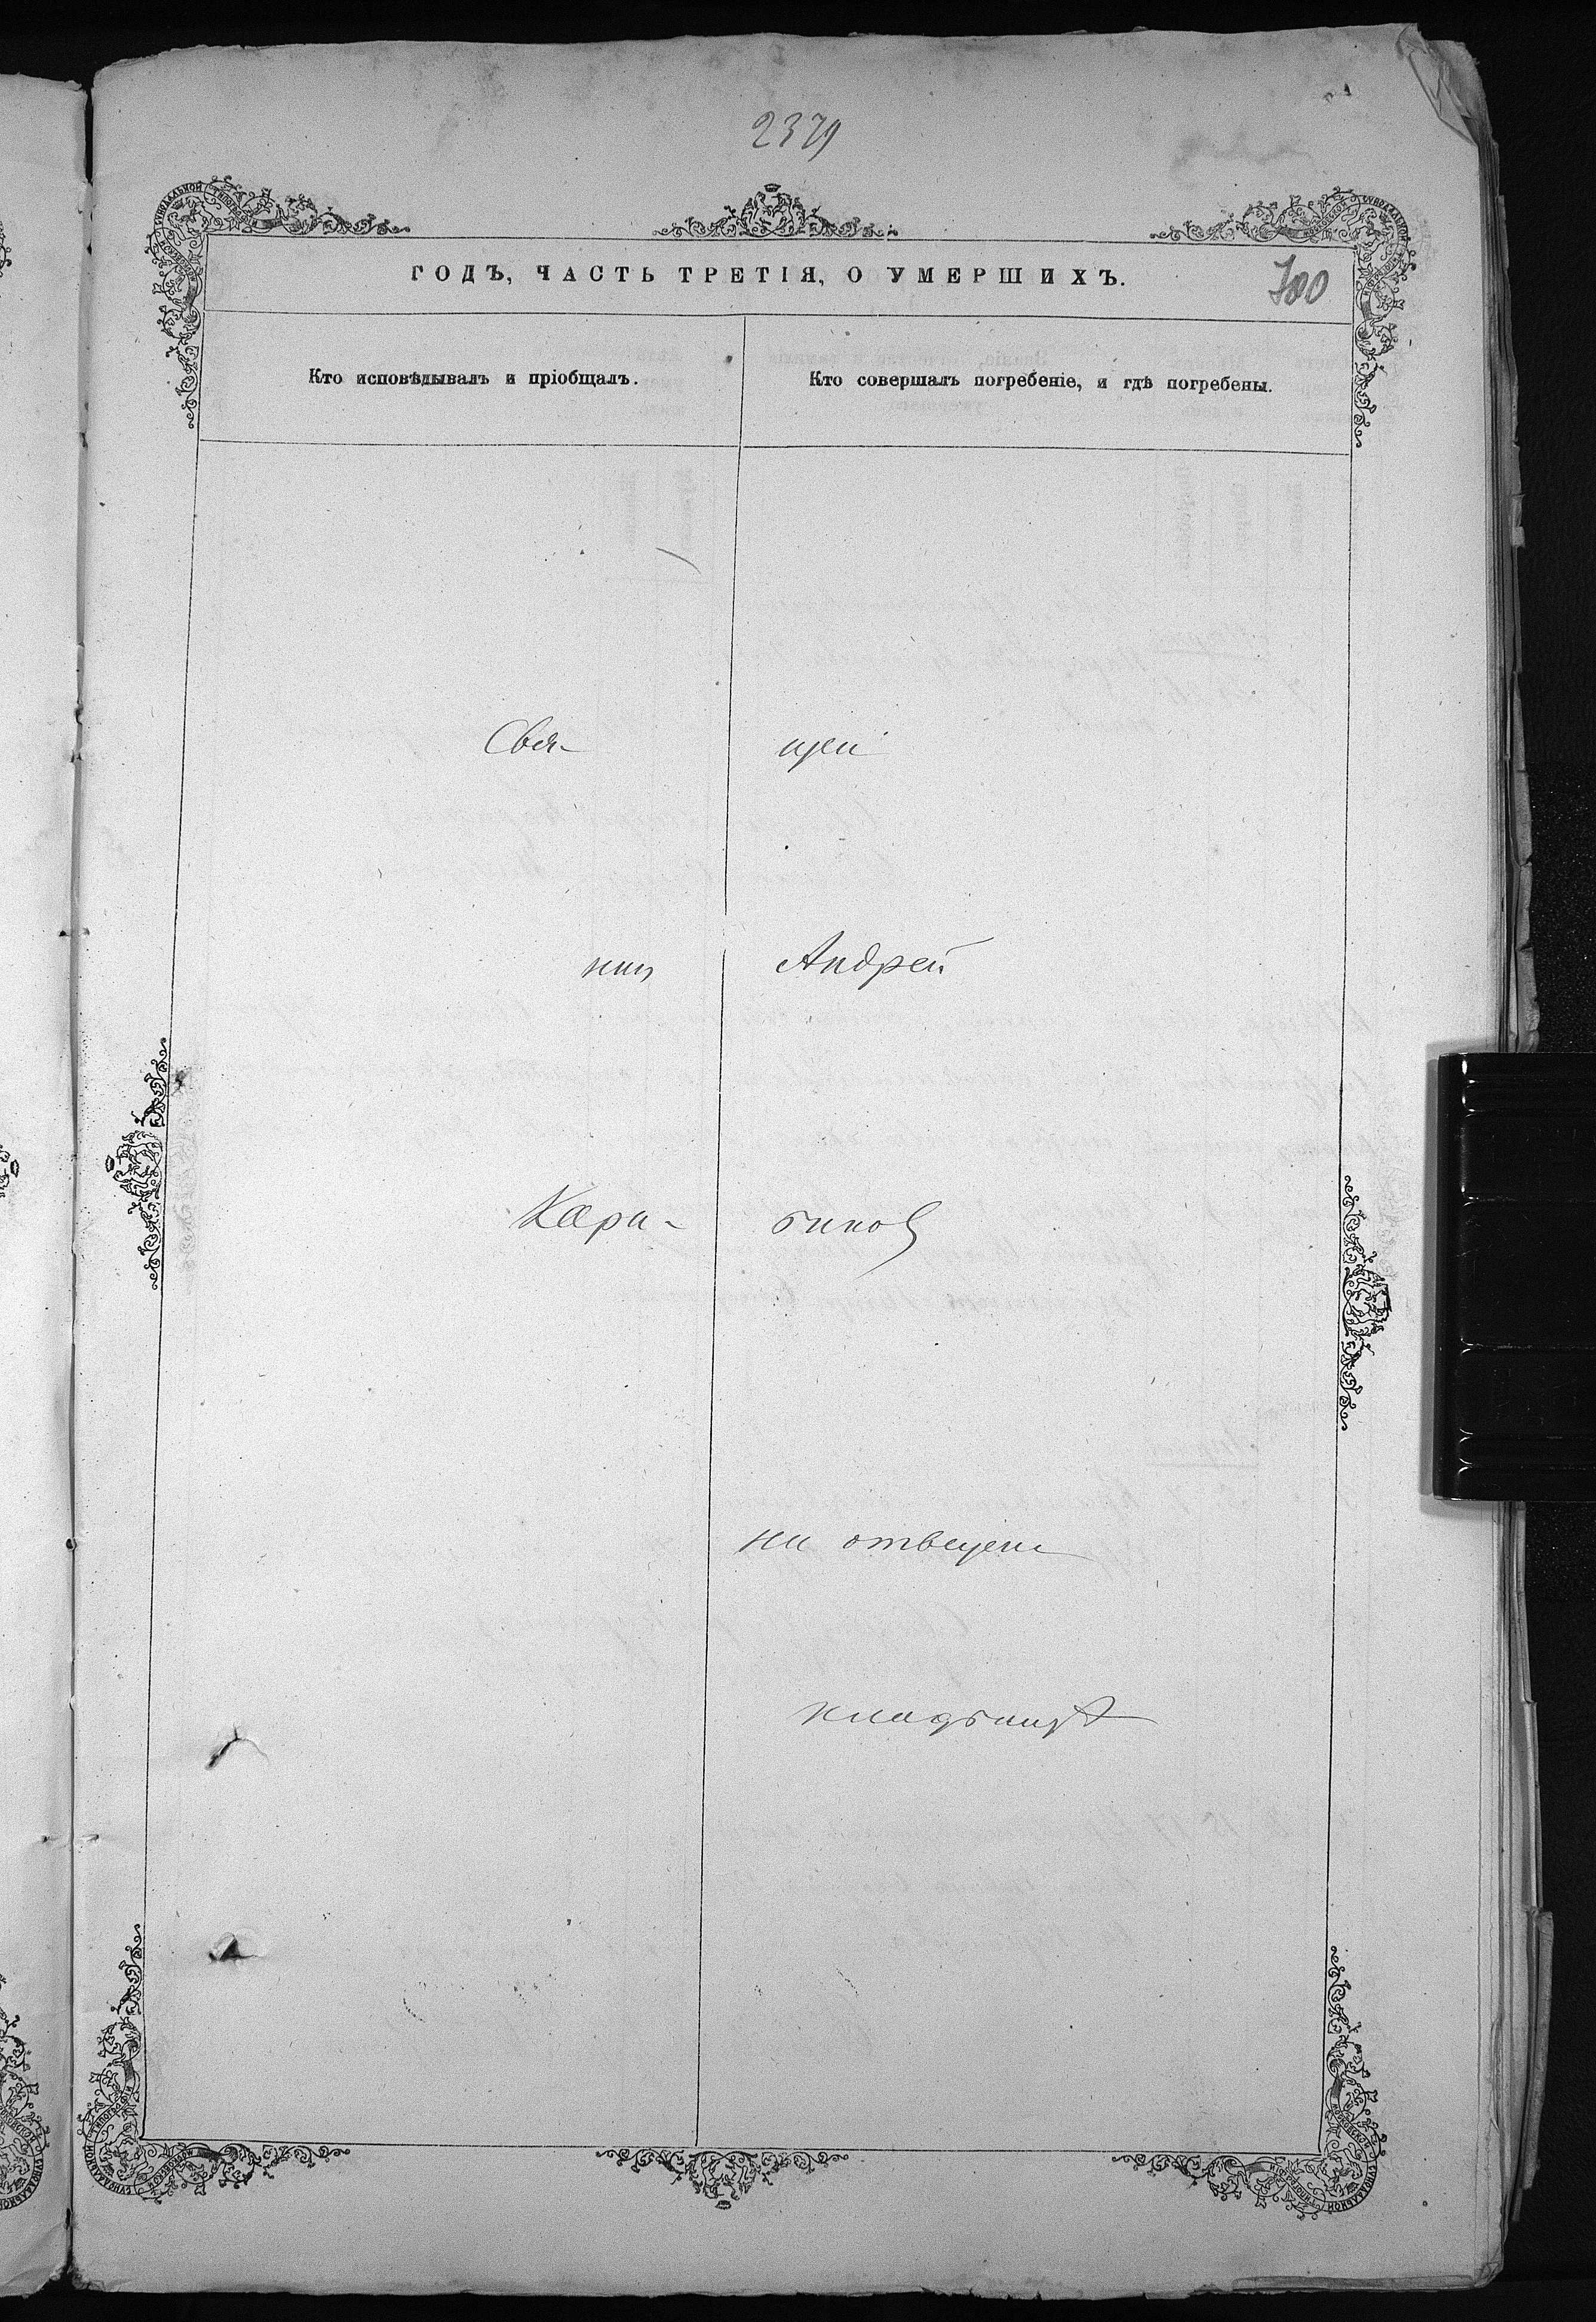 2379
ГОДЪ, ЧАСТЬ ТРЕТІЯ, О УМЕРШИХЪ.
700
Кто исповѣдывалъ и пріобщалъ.
Кто совершалъ погребеніе, и гдѣ погребены.
Свя- щен
ник Андрей
Кара- бинов
на отвещен
кладбищѣ